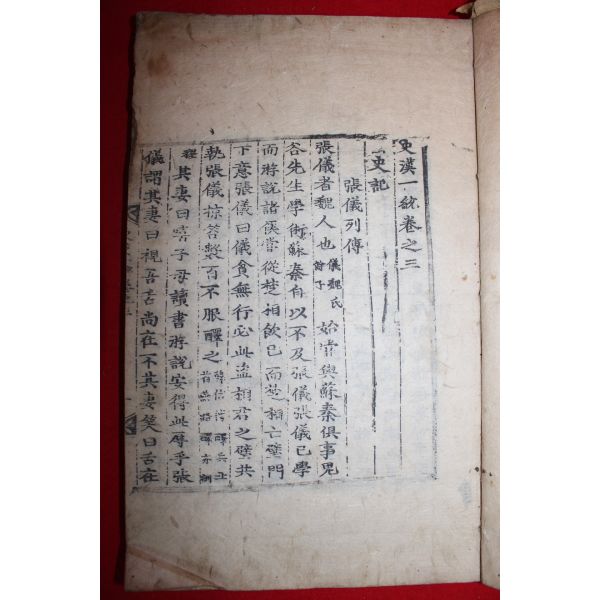 史漢一統卷之三
史記
張儀列傳
張儀者魏人也 儀魏氏餘子 始甞與蘇秦俱事鬼
谷先生學術蘇秦自以不及張儀張儀已學
而將說諸侯甞從楚相飮已而楚相亡璧門
下意張儀曰儀貧無行必此盜相君之璧共
執張儀掠笞數百不服釋之
其妻曰嘻子毋讀書將說安得此辱乎張
儀謂其妻曰視吾舌尚在不其妻笑曰舌在